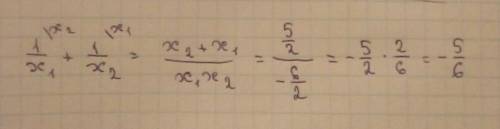 1/x₁ \x₂ + 1/x₂ \x₁ = (x₂ + x₁)/(x₁x₂) = (5/2)/(-6/2) = -5/2 · 2/6 = -5/6